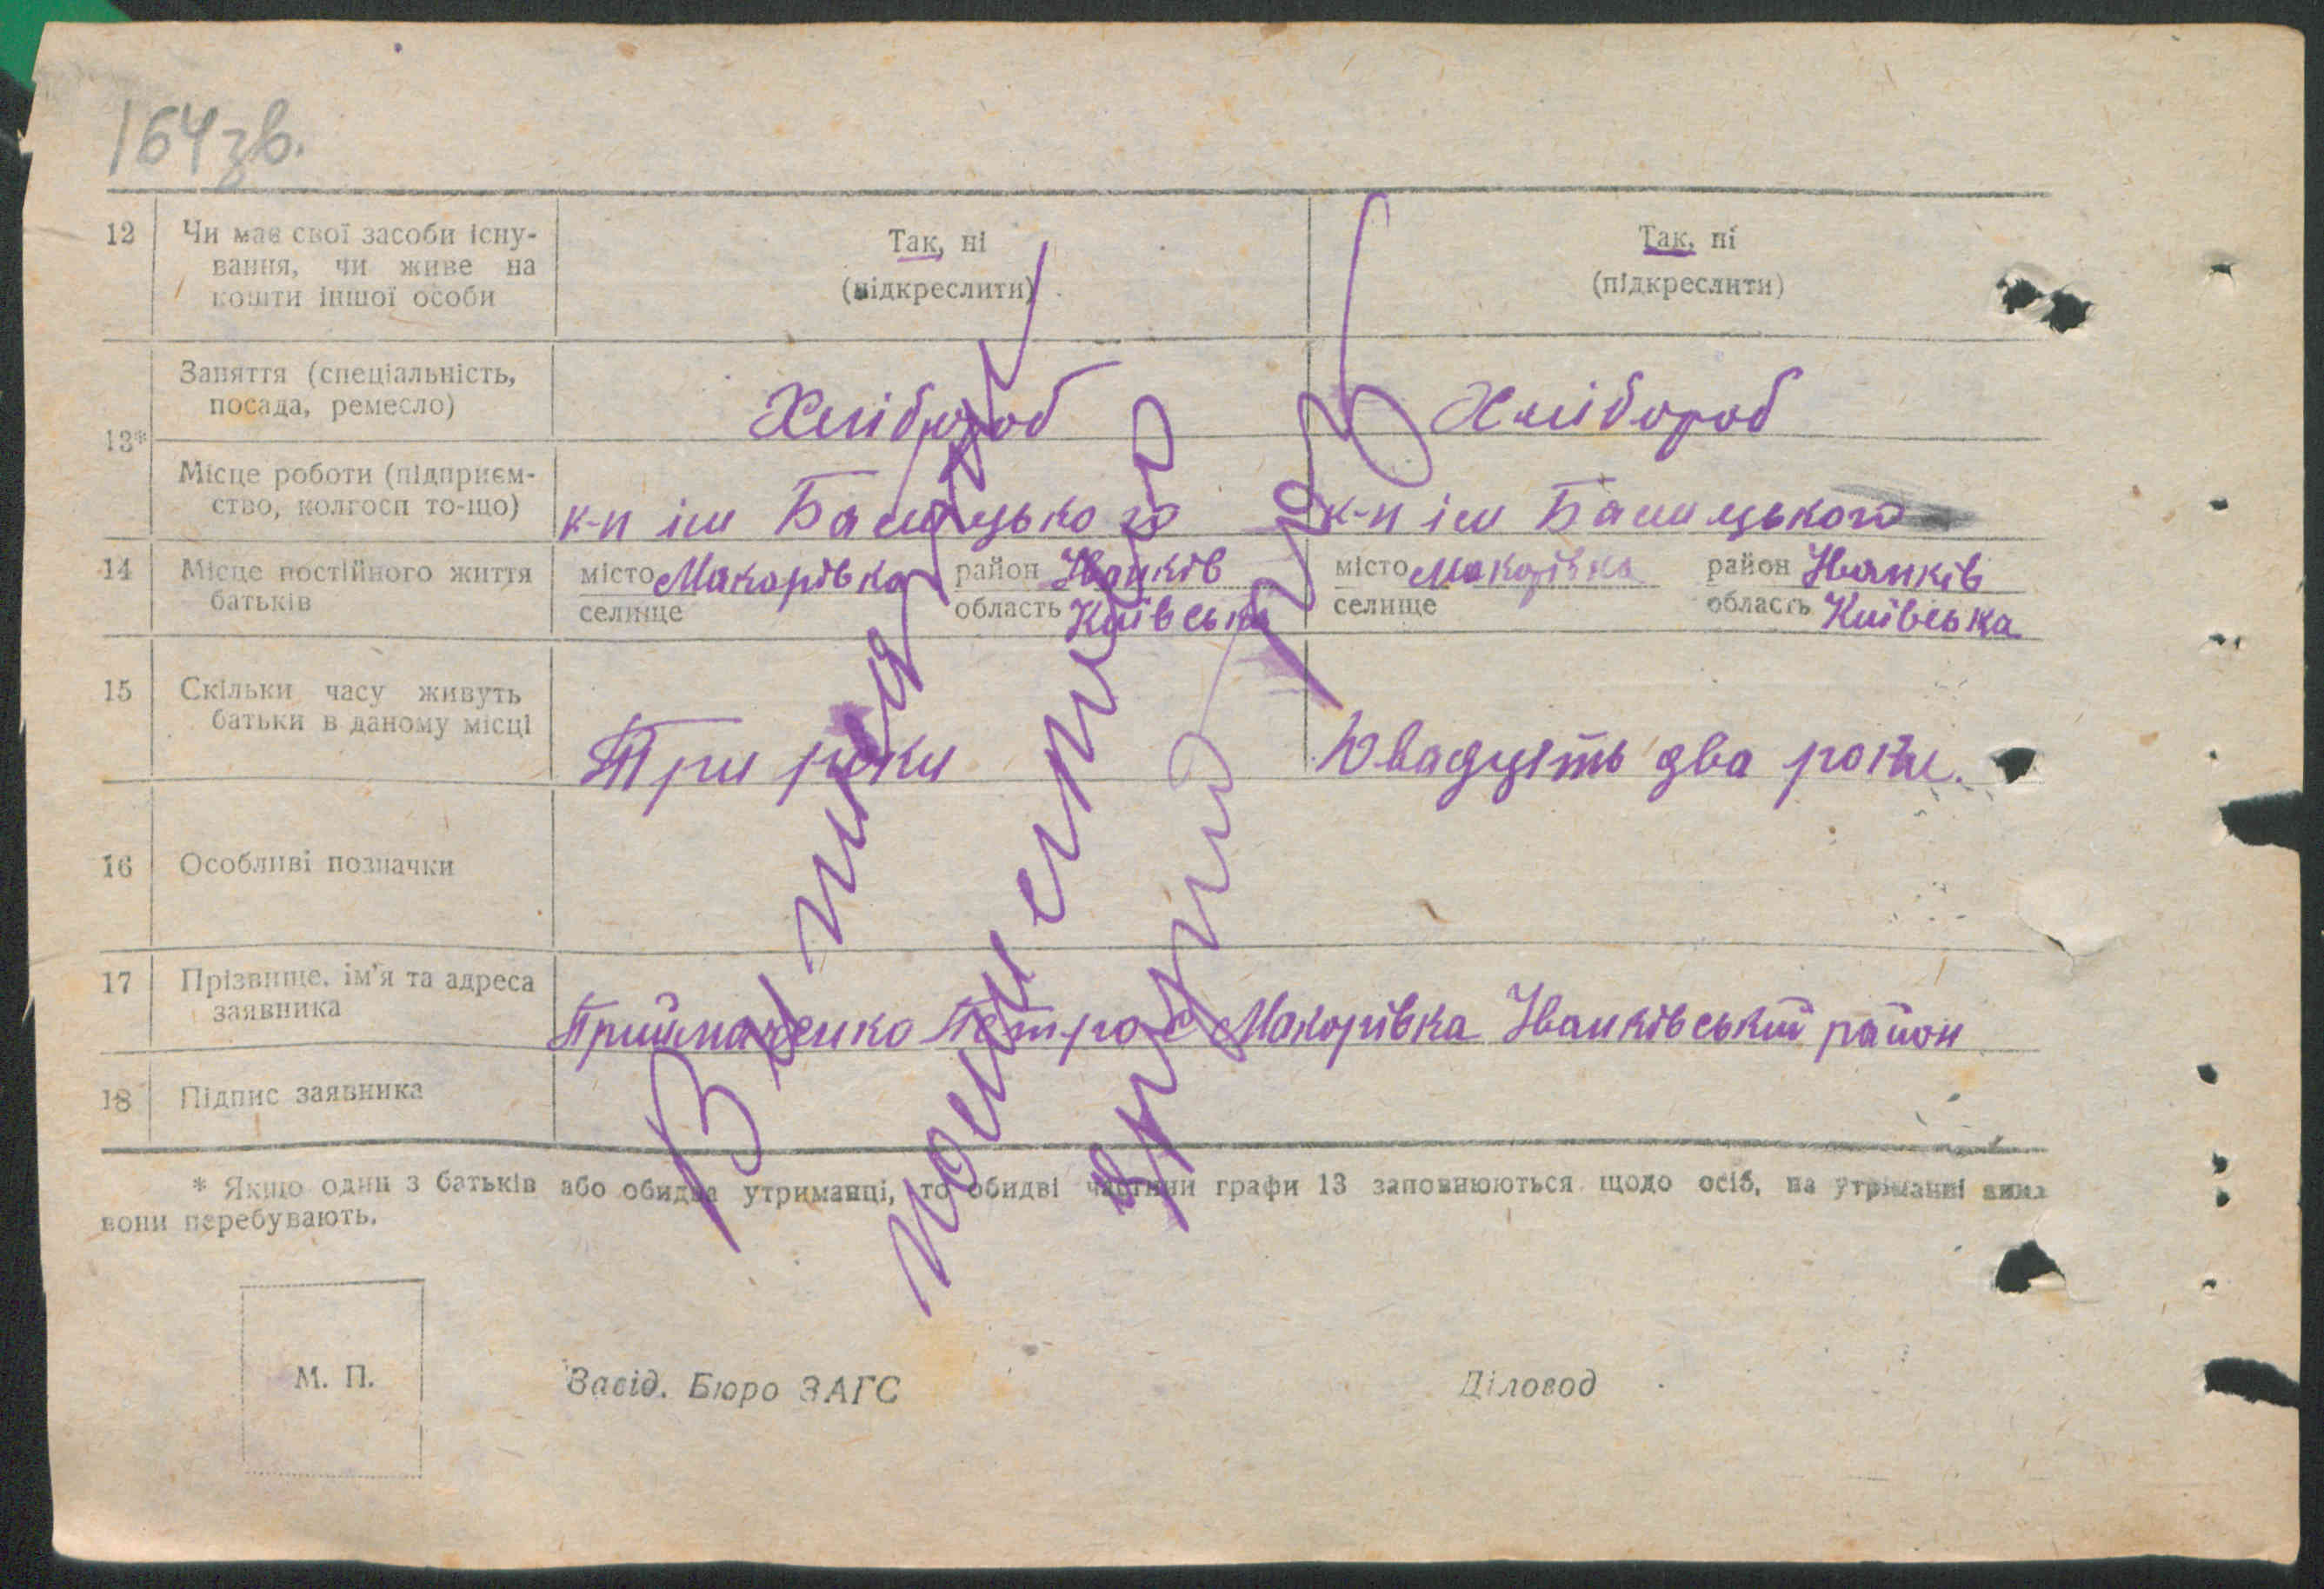 164 зв.
12 Чи має свої засоби існу-
вання, чи живе на
кошти іншої особи
Так, ні
(підкреслити)
Так, ні
(підкреслити)
13*
Заняття (спеціальність,
посада, ремесло)
Хлібороб
Хлібороб
Місце роботи (підприєм-
ство, колгосп то-що)
к-п ім
к-п ім
14 Місце постійного життя
батьків
місто Макорівка район Іванків
селище область Київська
місто Макорівка район Іванків
селище область Київська
15 Скільки часу живуть
батьки в даному місці
Три роки
Двадцять два роки.
16 Особливі позначки
17 Прізвище, ім'я та адреса
заявника
Приймаченко Петро с Макорівка Іванківський район
18 Підпис заявника
* Якщо один з батьків або обидва утриманці, то обидві частини графи 13 заповнюються щодо осіб, на утриманні яких
вони перебувають.
М. П.
Завід. Бюро ЗАГС
Діловод